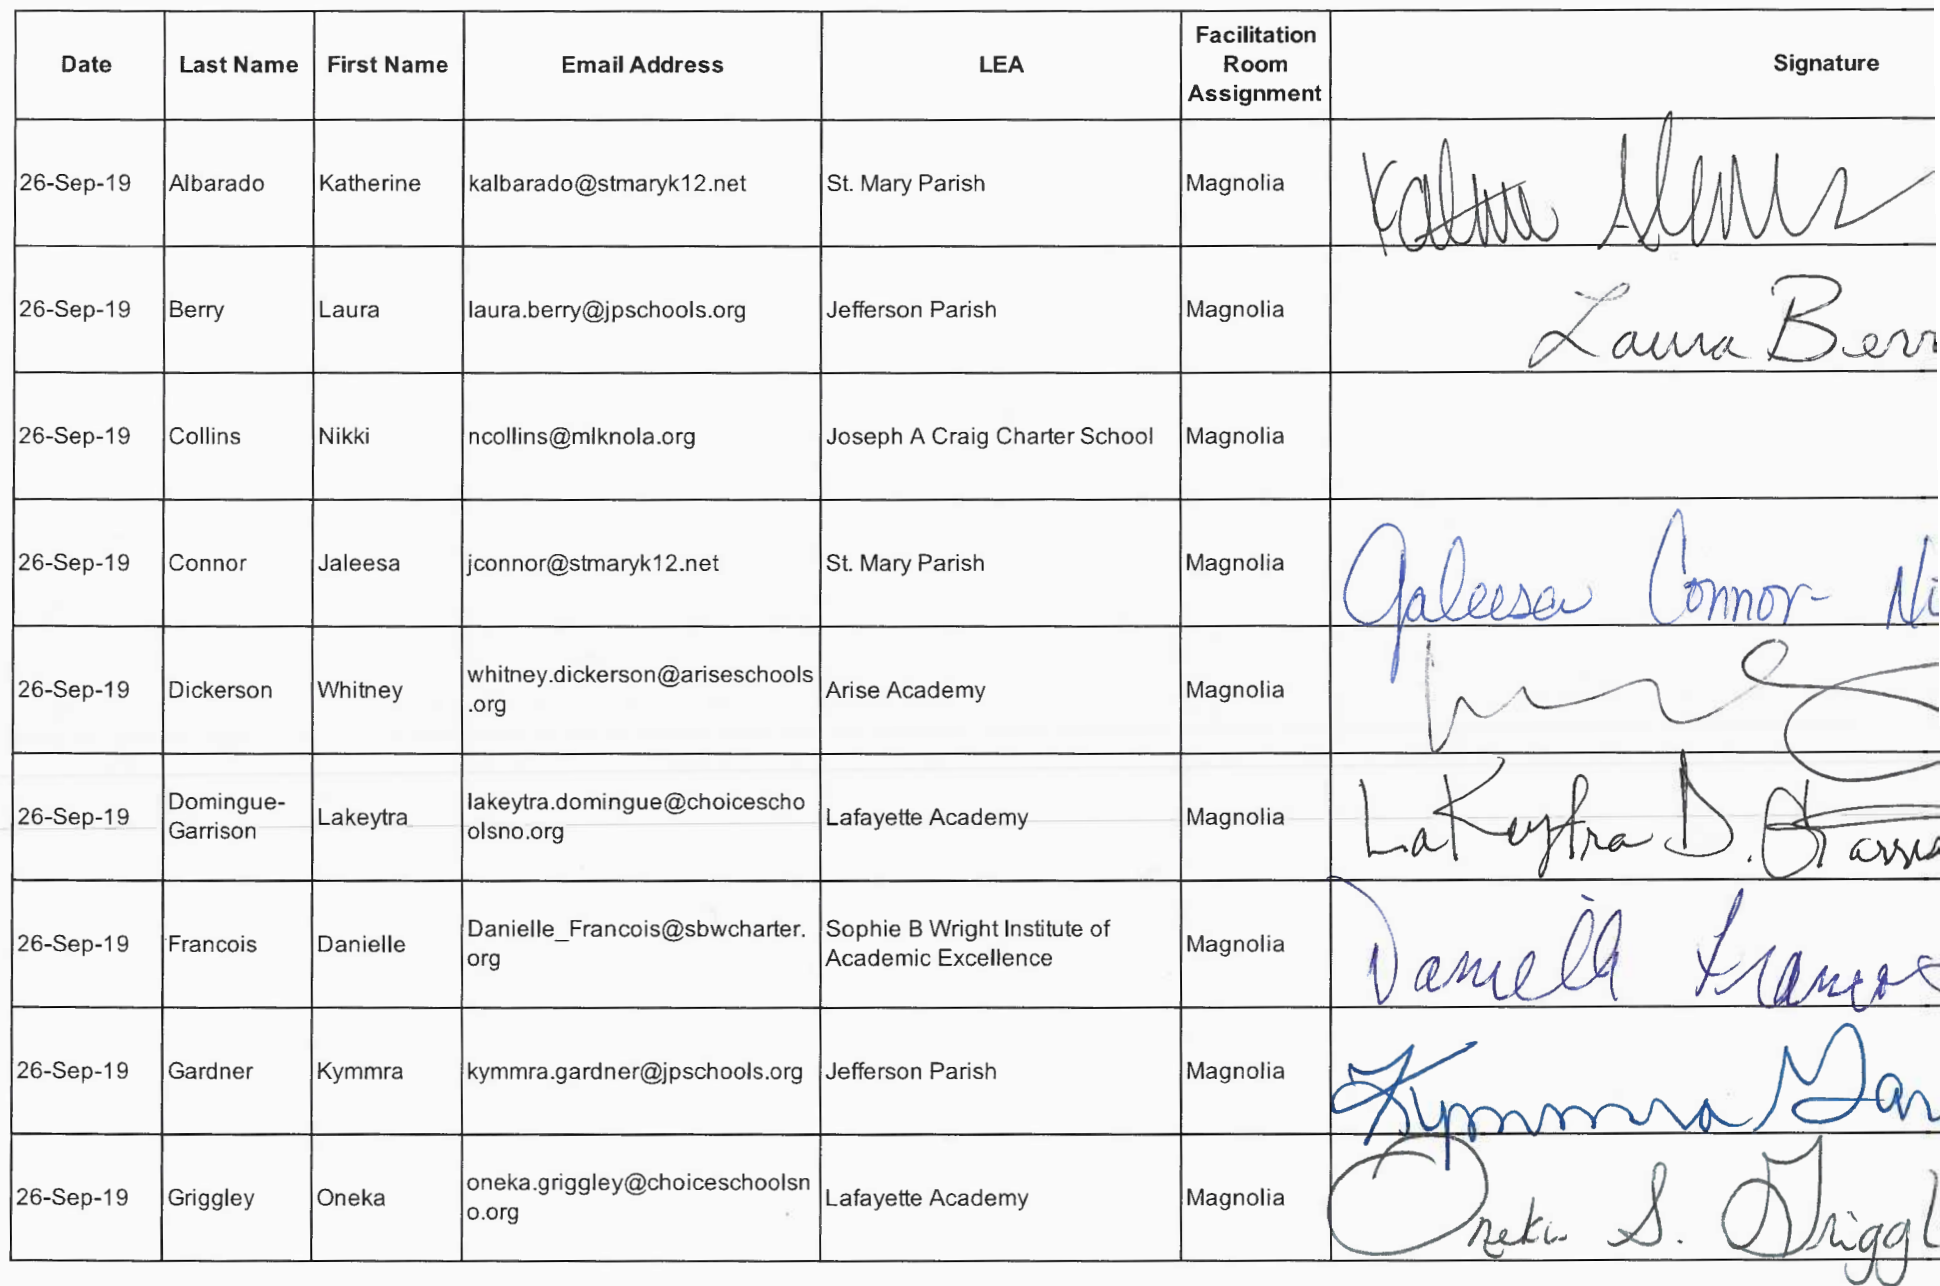 Date Last Name First Name Email Address LEA Facilitation Room Assignment Signature
26-Sep-19 Albarado Katherine kalbarado@stmaryk12.net St. Mary Parish Magnolia
26-Sep-19 Berry Laura laura.berry@jpschools.org Jefferson Parish Magnolia Laura Berr
26-Sep-19 Collins Nikki ncollins@mlknola.org Joseph A Craig Charter School Magnolia
26-Sep-19 Connor Jaleesa jconnor@stmaryk12.net St. Mary Parish Magnolia Jaleesa Connor- Ni
26-Sep-19 Dickerson Whitney whitney.dickerson@ariseschools
.org Arise Academy Magnolia
26-Sep-19 Domingue-
Garrison Lakeytra lakeytra.domingue@choicescho
olsno.org Lafayette Academy Magnolia LaKeytra D. Garriso
26-Sep-19 Francois Danielle Danielle_Francois@sbwcharter.
org Sophie B Wright Institute of
Academic Excellence Magnolia Danielle Francois
26-Sep-19 Gardner Kymmra kymmra.gardner@jpschools.org Jefferson Parish Magnolia Kymmra Gar
26-Sep-19 Griggley Oneka oneka.griggley@choiceschoolsn
o.org Lafayette Academy Magnolia Oneka S. Griggl